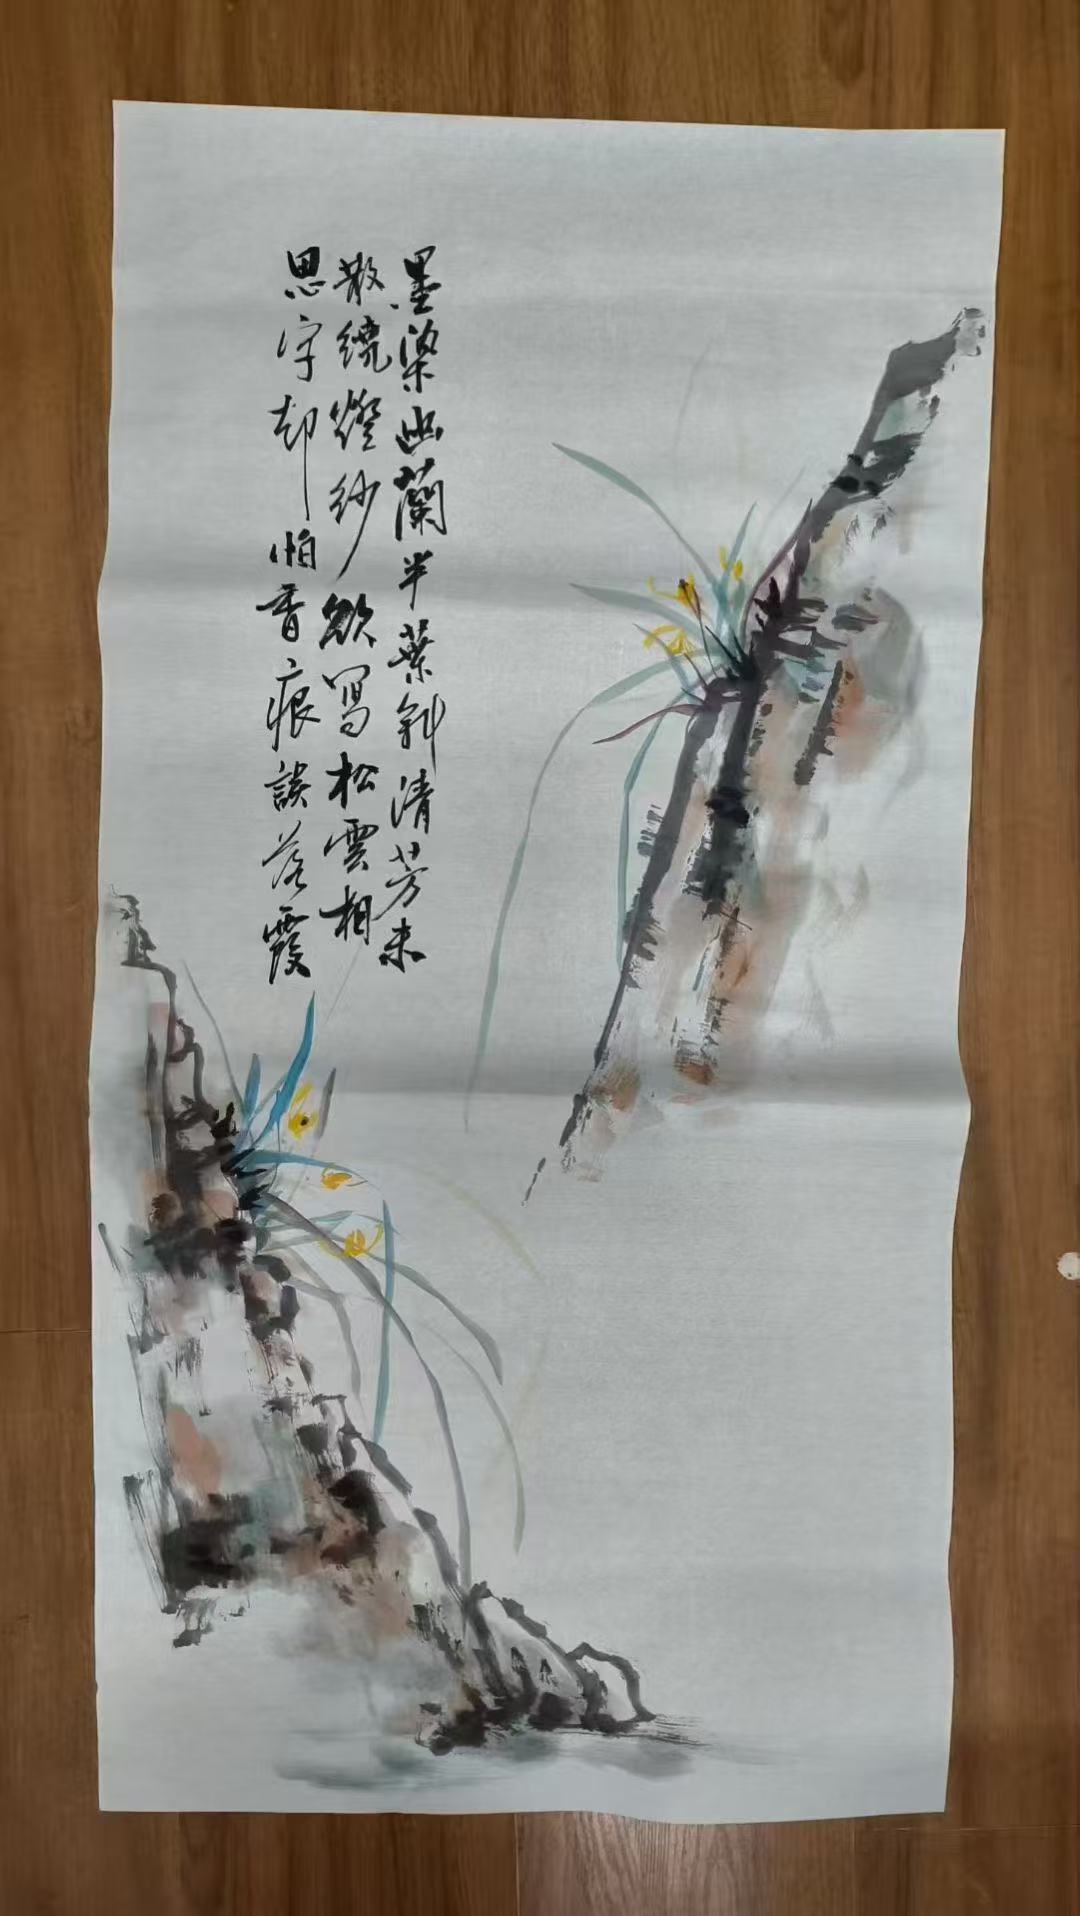 墨染幽蘭半葉斜清芳未
散繞燈紗欲寫松雲相
思字却怕香痕誤落霞